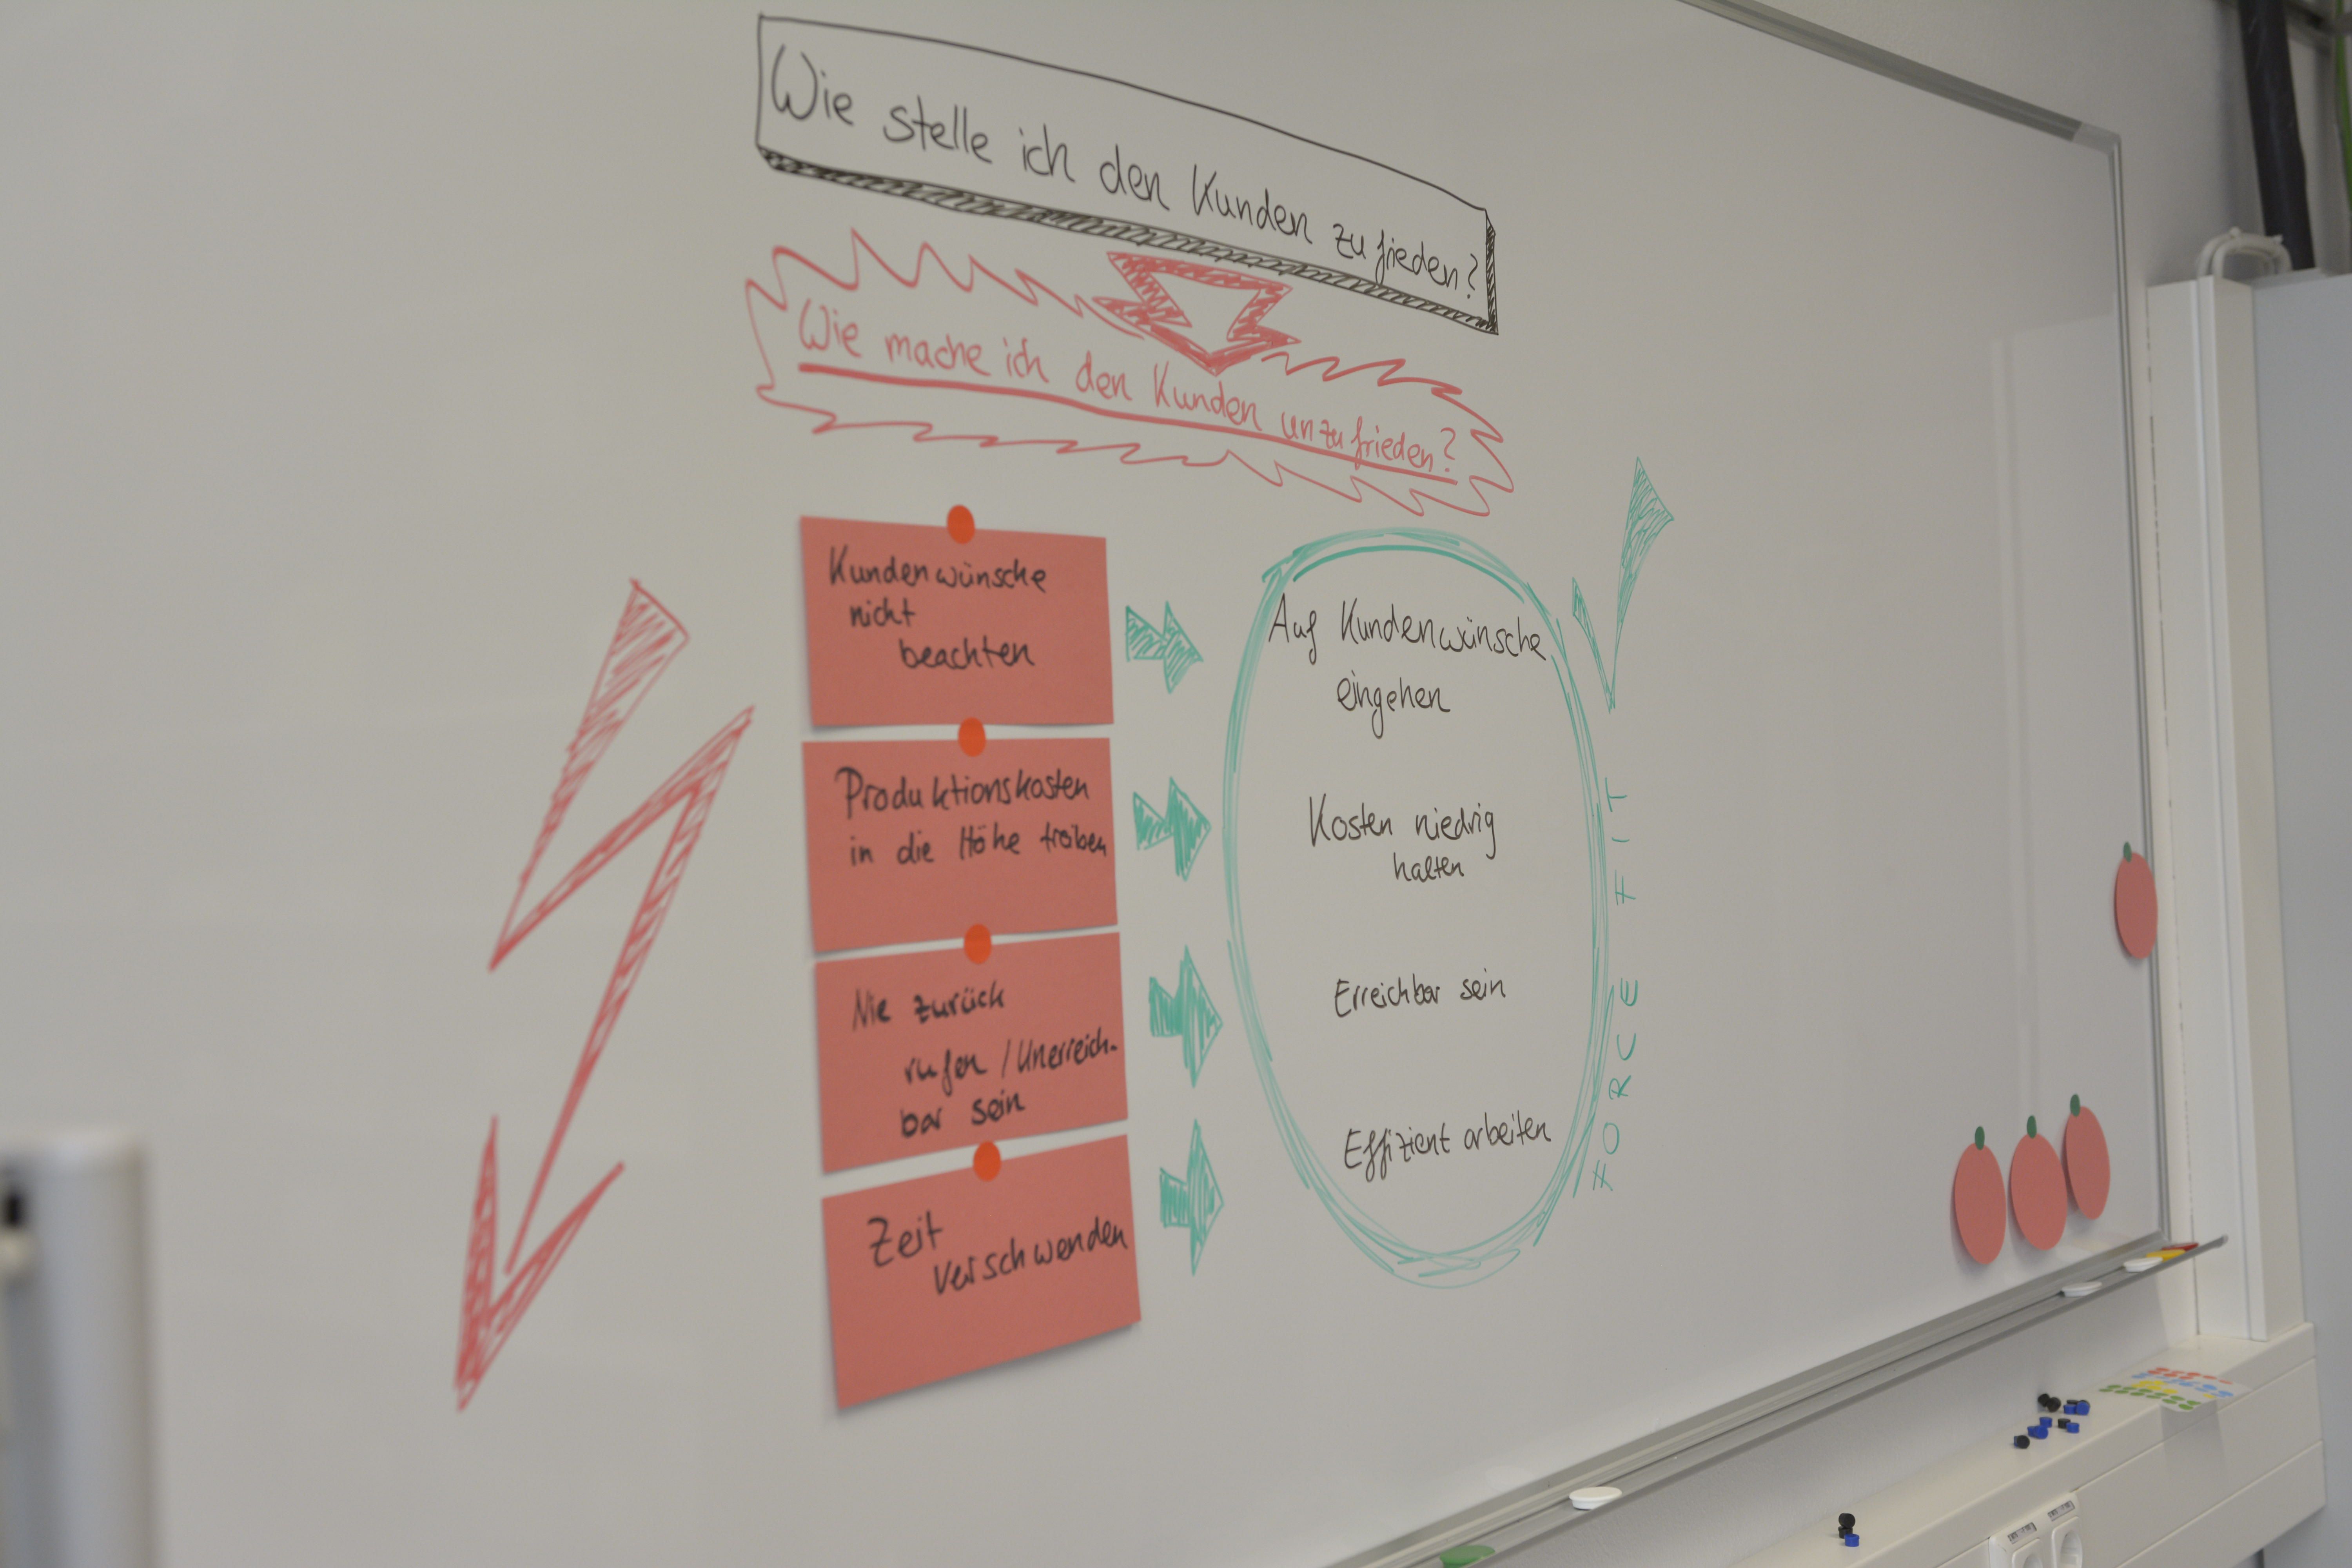 Wie stelle ich den Kunden zufrieden?
Wie mache ich den Kunden unzufrieden?
Kundenwünsche
nicht
beachten
Auf Kundenwünsche
eingehen
Produktionskosten
in die Höhe treiben
Kosten niedrig
halten
Nie zurück
rufen / Unerreich-
bar sein
Erreichbar sein
Zeit
verschwenden
Effizient arbeiten
FORCE FIT